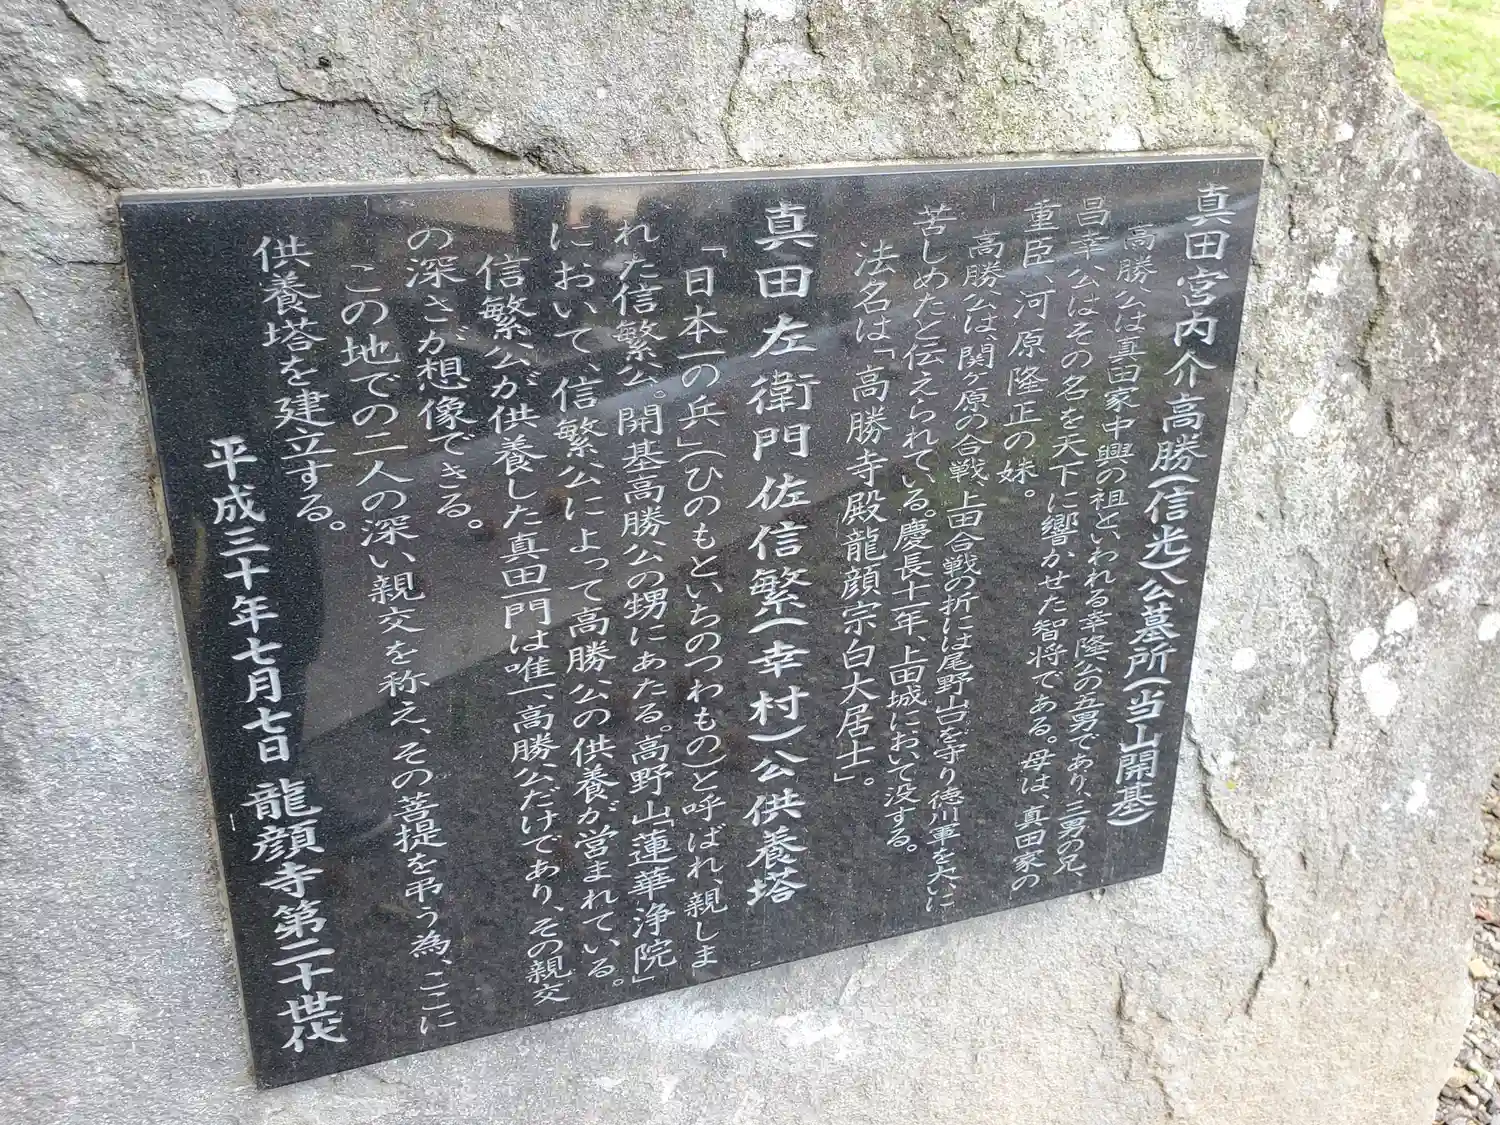 真田宮内介高勝(信光)公墓所(当山開基)
高勝公は真田家中興の祖といわれる幸隆公の五男であり、三男の兄、
昌幸公はその名を天下に響かせた智将である。母は、真田家の
重臣、河原隆正の妹。
高勝公は、関ヶ原の合戦、上田合戦の折には尾野山を守り徳川軍を大いに
苦しめたと伝えられている。慶長十一年、上田城において没する。
法名は「高勝寺殿龍顔宗白大居士」。
真田左衛門佐信繁(幸村)公供養塔
「日本一の兵」(ひのもといちのつわもの)と呼ばれ、親しま
れた信繁公。開基高勝公の甥にあたる。高野山「蓮華浄院」
において、信繁公によって高勝公の供養が営まれている。
信繁公が供養した真田一門は唯一、高勝公だけであり、その親交
の深さが想像できる。
この地での二人の深い親交を称え、その菩提を弔う為、ここに
供養塔を建立する。
平成三十年七月七日 龍顔寺第二十世代